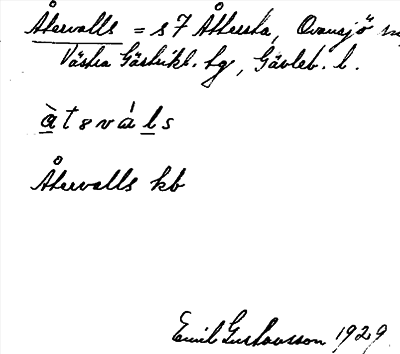 Återvalls = s 7 Åttersta, Ovansjö
Västra Gästrikl. tg, Gävleb. l.
àtsváls
Återvalls kb
Emil Gustavsson 1929